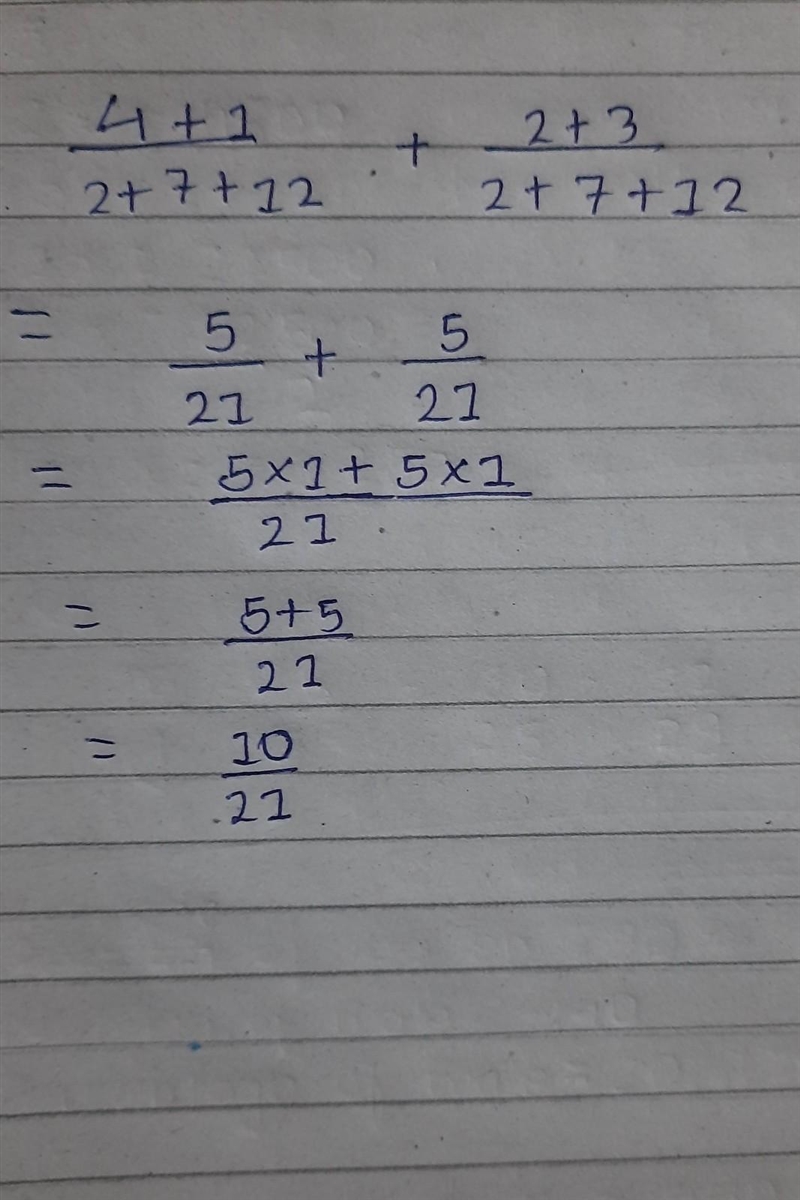 4+1 / 2+7+12 + 2+3 / 2+7+12
= 5/21 + 5/21
= 5×1+5×1 / 21
= 5+5 / 21
= 10/21